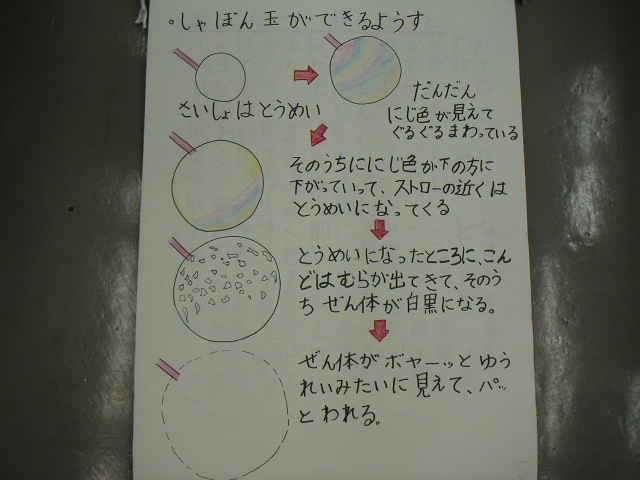 。しゃぼん玉ができるようす
さいしょはとうめい
だんだん
にじ色が見えて
ぐるぐるまわっている
そのうちににじ色が下の方に
下がっていって、ストローの近くは
とうめいになってくる
とうめいになったところに、こん
どはむらが出てきて、そのう
ちぜん体が白黒になる。
ぜん体がボヤーッとゆう
れいみたいに見えて、パッ
とわれる。